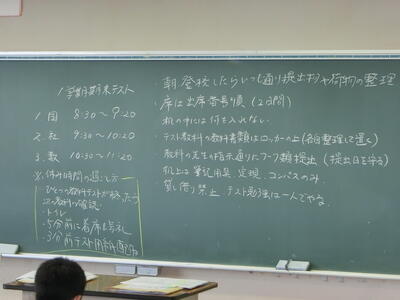 1学期期末テスト
1 国 8:30〜9:20
2. 社 9:30〜10:20
3. 数 10:30〜11:20
※休み時間の過し方
・ひとつの教科テストが終ったら
次の教科の確認。
・トイレ
・5分前に着席
・3分前テスト用紙配布
朝登校したらいつも通り提出物や荷物の整理
・席は出席番号順
・机の中には何も入れない。
・テスト教科の教科書類はロッカーの上(各自整理して置く)
・教科の先生の指示通りにワーク類提出(提出日を守る)
・机上は筆記用具、定規、コンパスのみ
貸し借り禁止 テスト勉強は一人でやる。